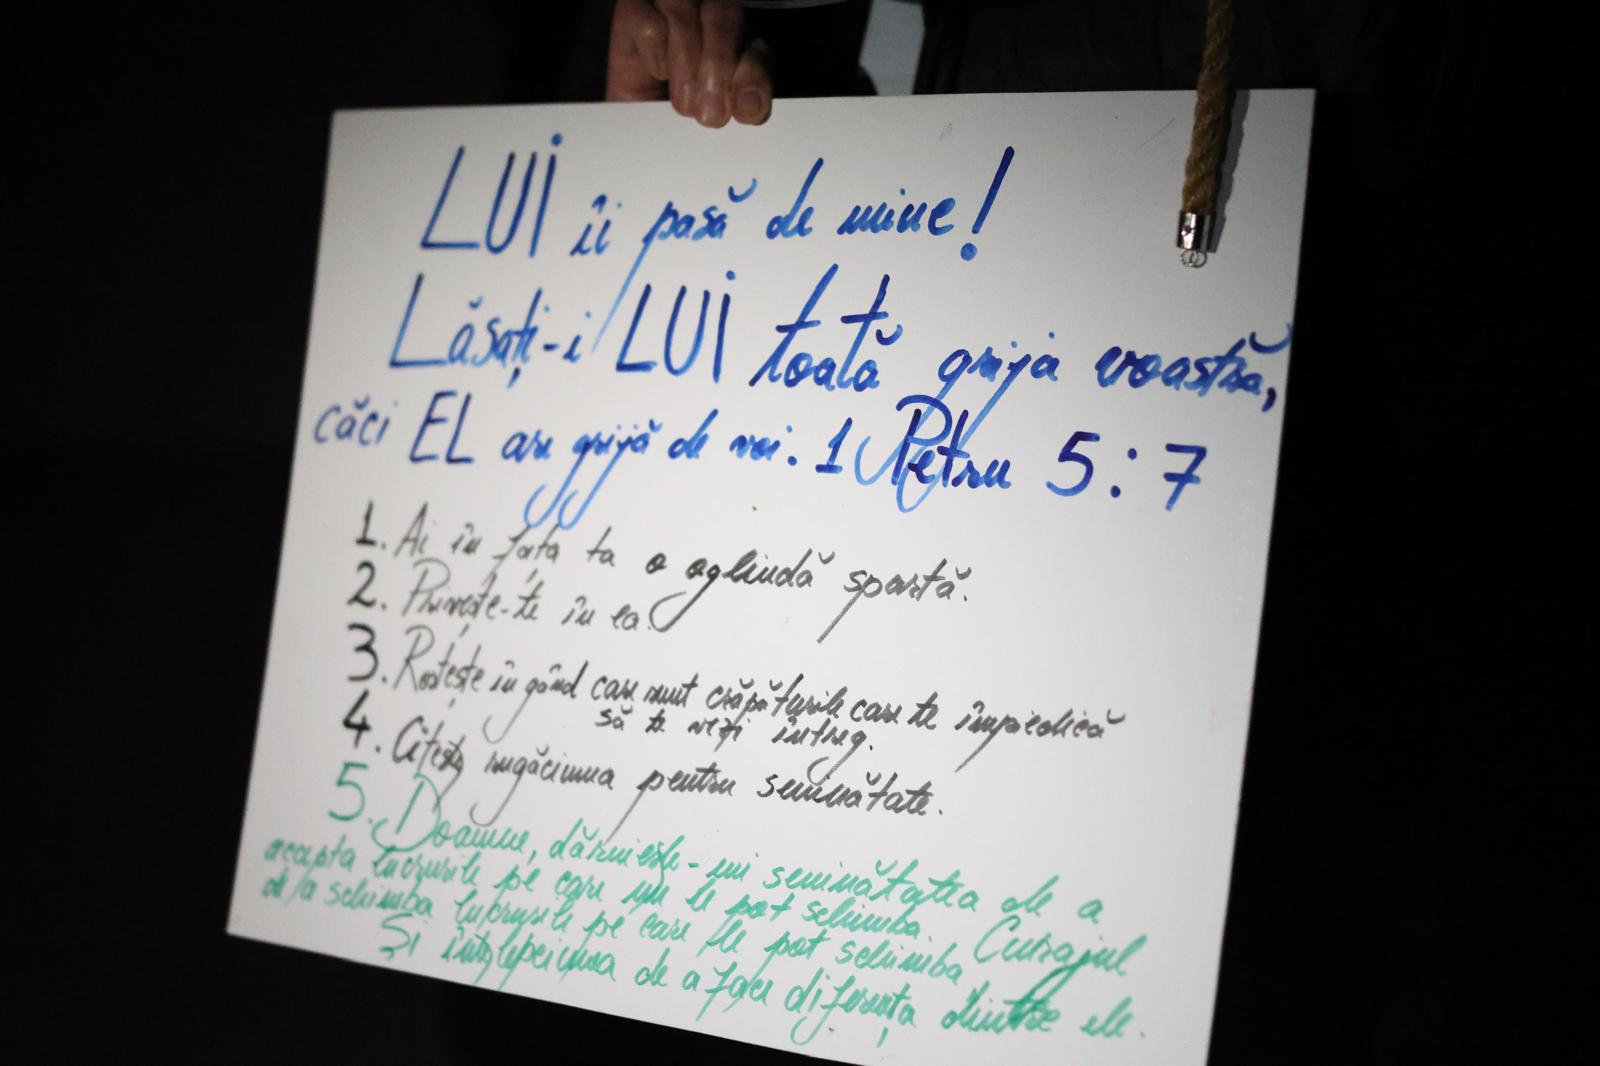 LUI îi pasă de mine!
Lăsați-i LUI toată grija voastră,
căci EL are grijă de voi. 1 Petru 5:7
1. Ai în fața ta o oglindă spartă.
2. Privește-te în ea.
3. Rostește în gând care sunt crăpăturile care te împiedică
să te vezi întreg.
4. Citește rugăciunea pentru seninătate.
5. Doamne, dăruiește-mi seninătatea de a
accepta lucrurile pe care nu le pot schimba. Curajul
de a schimba lucrurile pe care le pot schimba
Și înțelepciunea de a face diferența dintre ele.